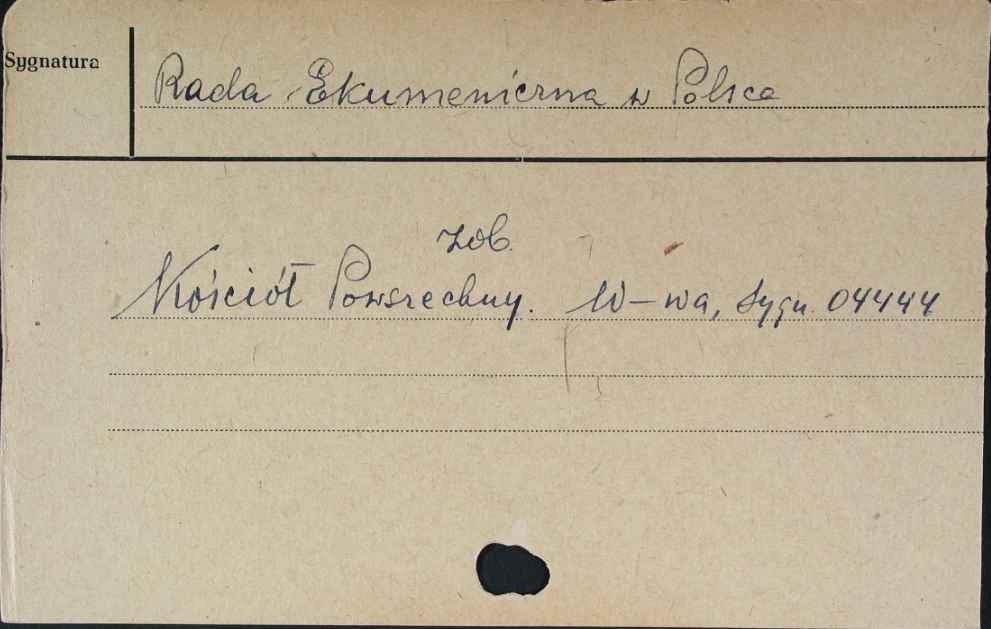 Sygnatura
Rada Ekumeniczna w Polsce
zob.
Kościół Powszechny. W-wa, Sygn. 04444